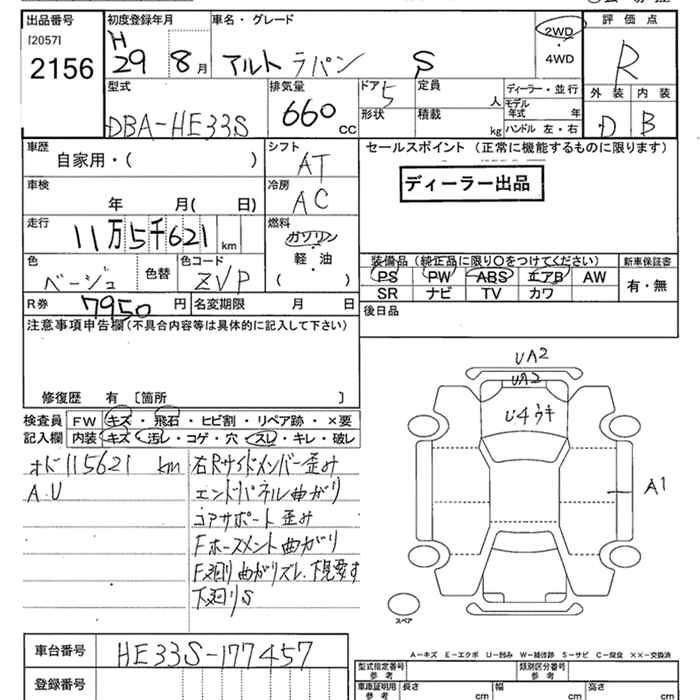 出品番号
[2057]
2156
初度登録年月
H
29 8月
車名・グレード
アルト ラパン S
2WD
・
4WD
評価点
R
外装 内装
D B
型式
DBA-HE33S
排気量
660 CC
ドア 5
形状
定員 人
積載 kg
ディーラー・並行
モデル年式 年
ハンドル 左・右
車歴
自家用・( )
シフト
AT
セールスポイント (正常に機能するものに限ります)
ディーラー出品
車検
年 月( 日)
冷房
AC
走行
11万5千621 km
燃料
ガソリン
軽・油
( )
色
ベージュ
色替
色コード
ZVP
装備品 (純正品に限り○をつけてください)
PS PW ABS エアB AW
SR ナビ TV カワ
新車保証書
有・無
R券 7950 円
名変期限 月 日
後日品
注意事項申告欄(不具合内容等は具体的に記入して下さい)
修復歴 有 [箇所 ]
検査員記入欄
FW キズ・飛石・ヒビ割・リペア跡・×要
内装 キズ・汚レ・コゲ・穴・スレ・キレ・破レ
オド115621 km
A.U
右Rサイドメンバー歪み
エンドパネル曲がり
コアサポート歪み
Fホースメント曲がり
F廻り曲がりズレ、下見要す
下廻りS
UA2
UA2
U4ウキ
A1
スペア
A-キズ E-エクボ U-凹み W-補修跡 S-サビ C-腐食 ××-交換済
車台番号
HE33S-177457
登録番号
型式指定番号
参考
類別区分番号
参考
車庫証明用
参考
長さ cm
幅 cm
高さ cm